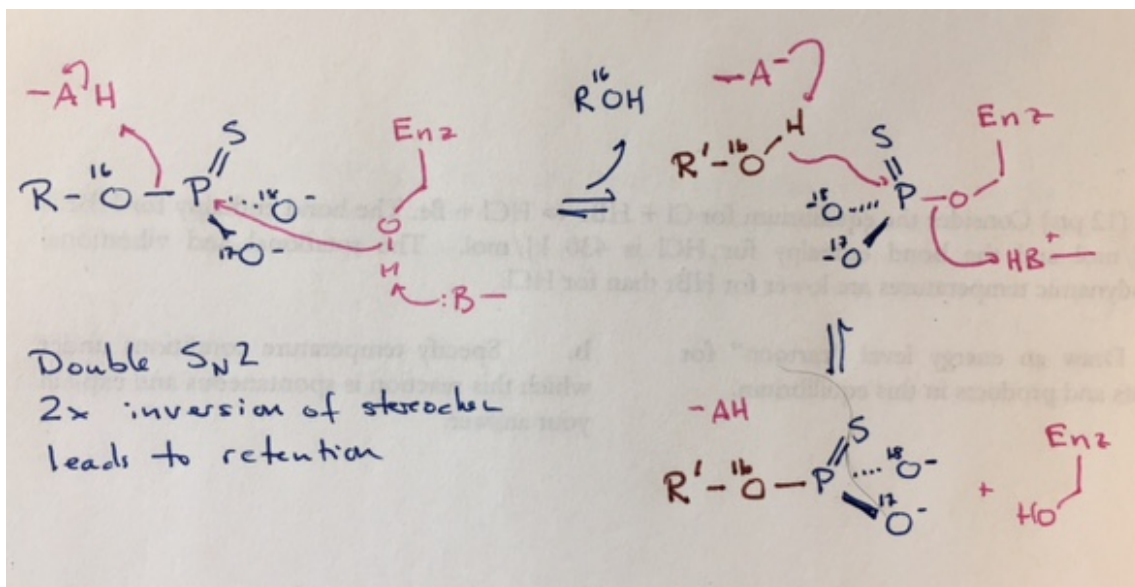 -A H
S
Enz
R-¹⁶O-P ¹⁸O⁻
¹⁷O⁻
O
H
:B-
R¹⁶OH
-A⁻
H
R'-¹⁶O
S
Enz
P-O
⁻¹⁸O
⁻¹⁷O
HB⁺
Double SN2
2x inversion of stereochem
leads to retention
-AH
S
Enz
R'-¹⁶O-P ¹⁸O⁻
¹⁷O⁻
+
HO